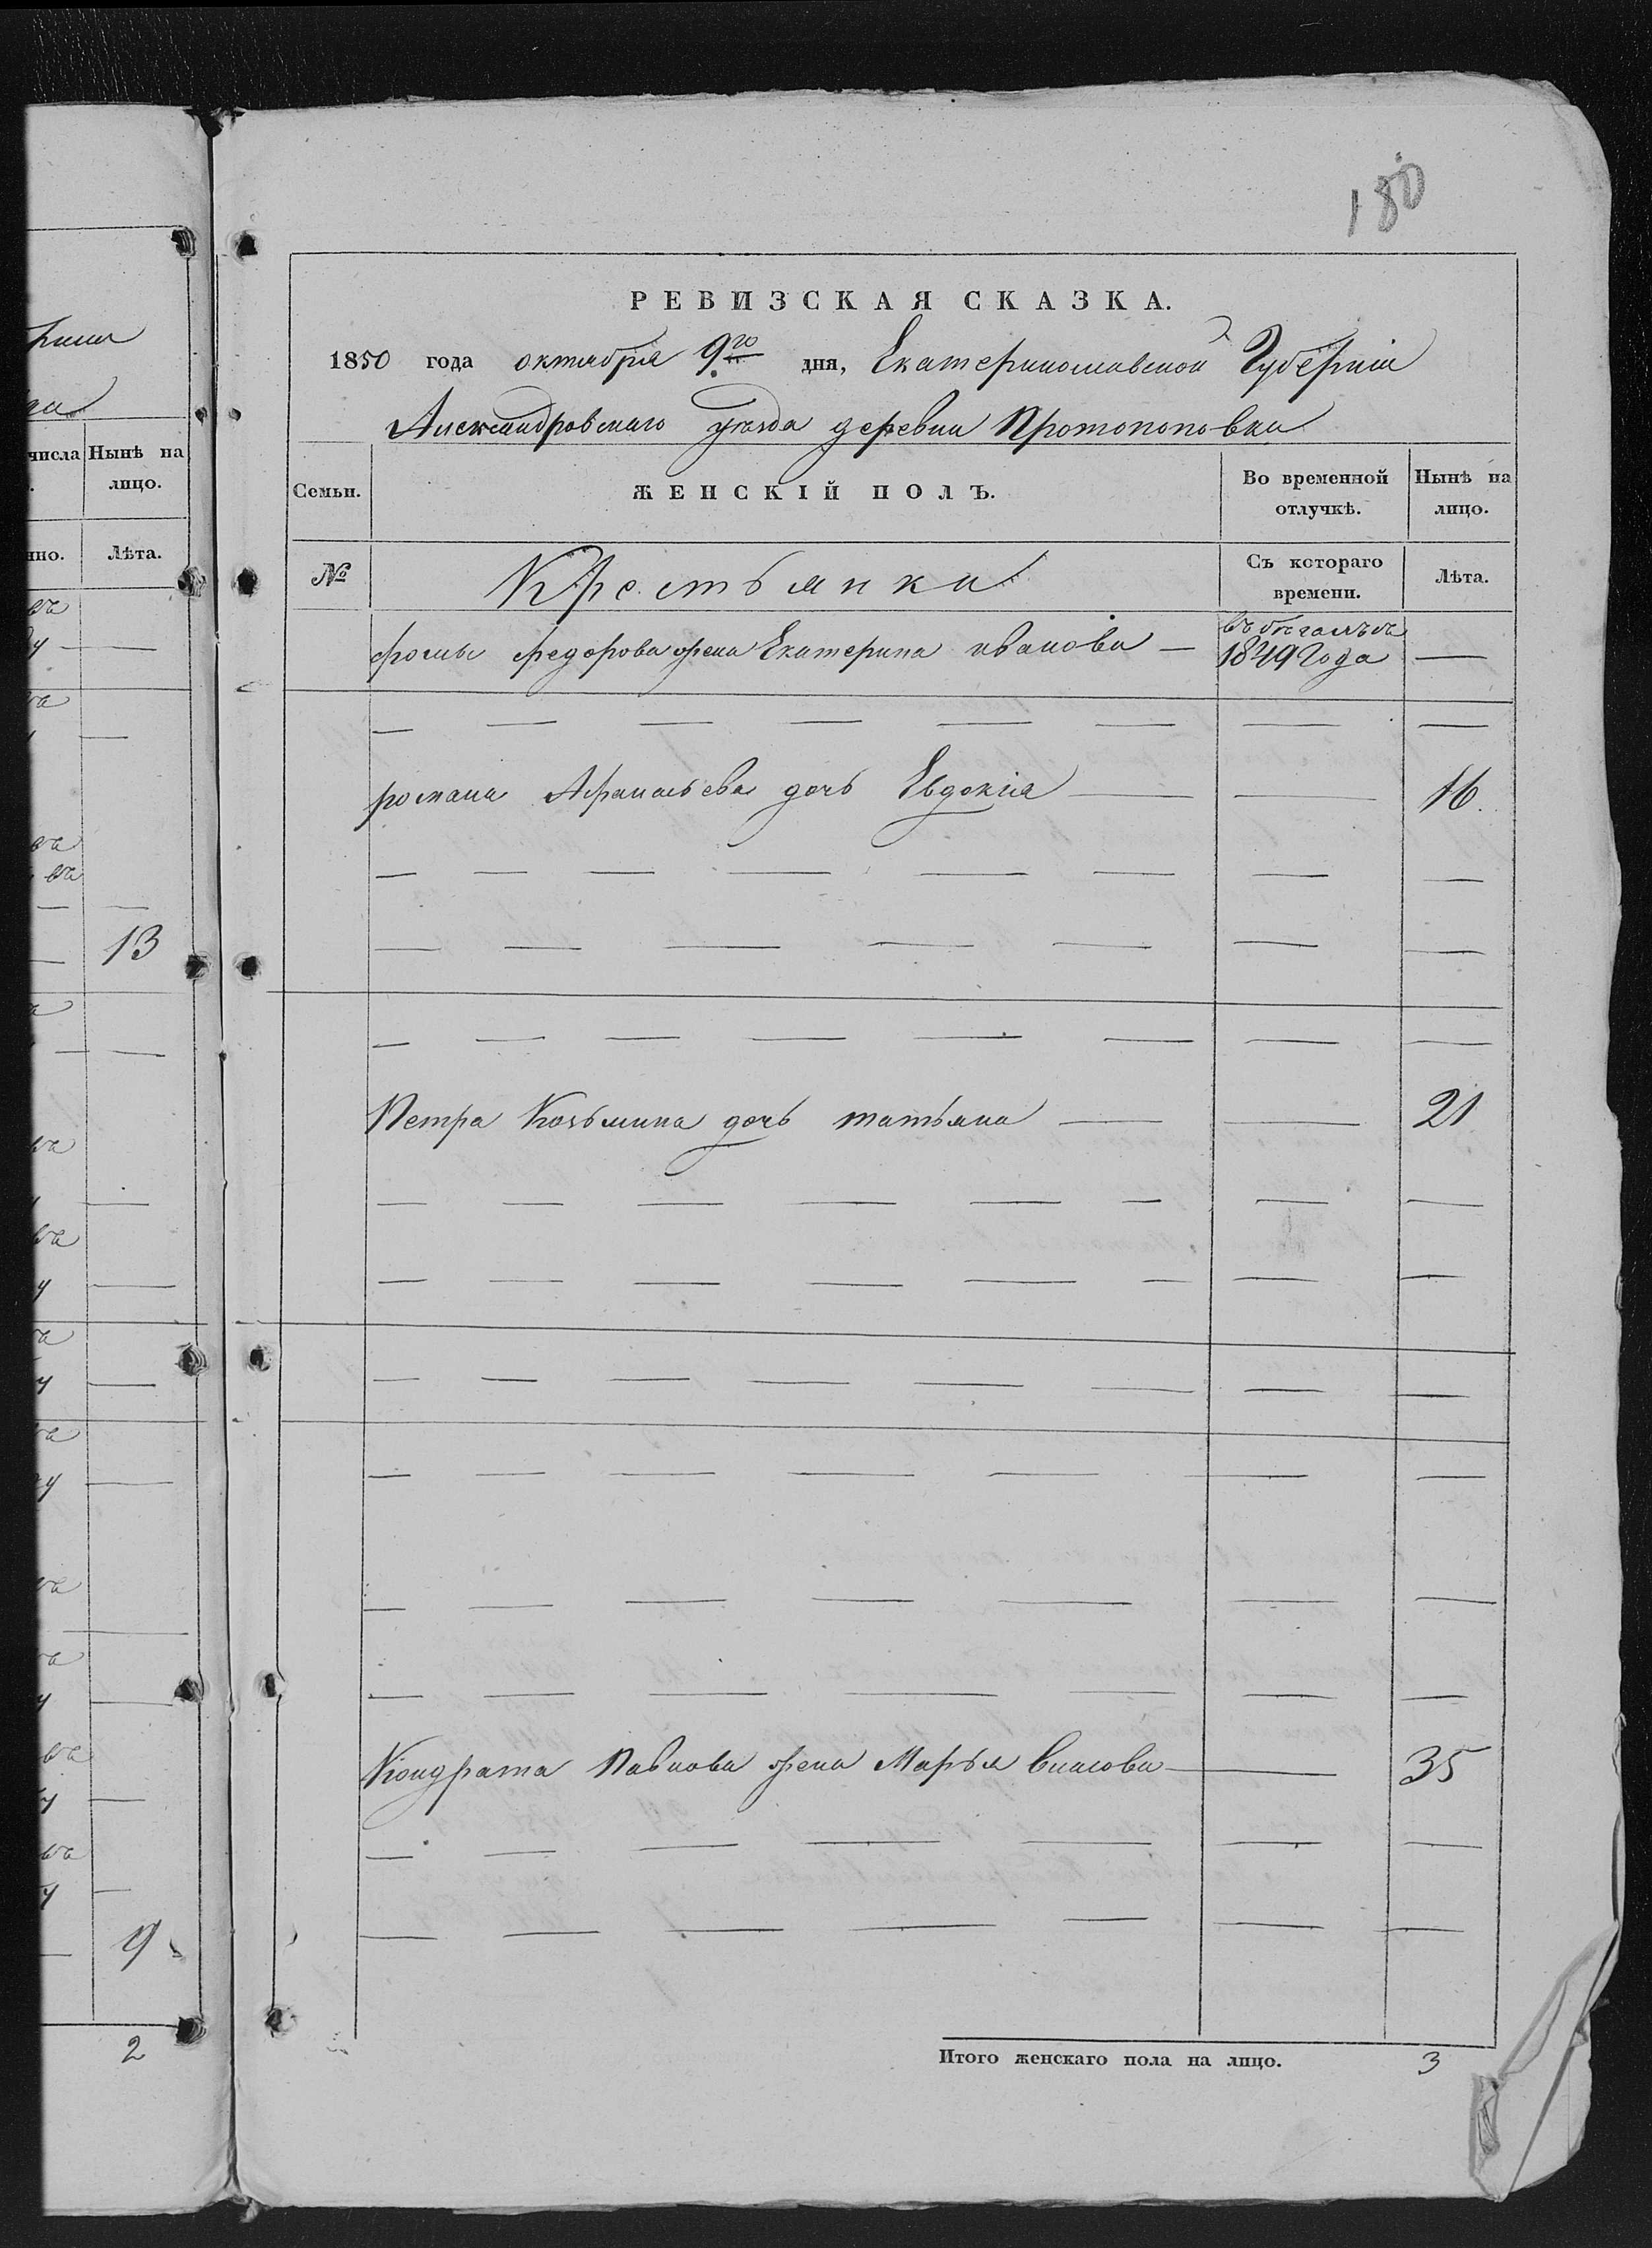 180
РЕВИЗСКАЯ СКАЗКА.
1850 года октября 9го дня, Екатеринославской Губерніи
Александровскаго уезда деревни Протопоповки
Семьи.
ЖЕНСКІЙ ПОЛЪ.
Во временной отлучкѣ.
Нынѣ на лицо.
№
Крестьянка
Съ котораго времени.
Лѣта.
фомы федорова жена Екатерина иванова — въ бегахъ съ 1849 Года —
романа Афанасьева дочь Евдокия — — 16.
Петра Козьмина дочь татьяна — — 21
Кондрата Павлова жена Марья власова — — 35
Итого женскаго пола на лицо. 3
числа
Нынѣ на лицо.
Лѣта.
13
9
2